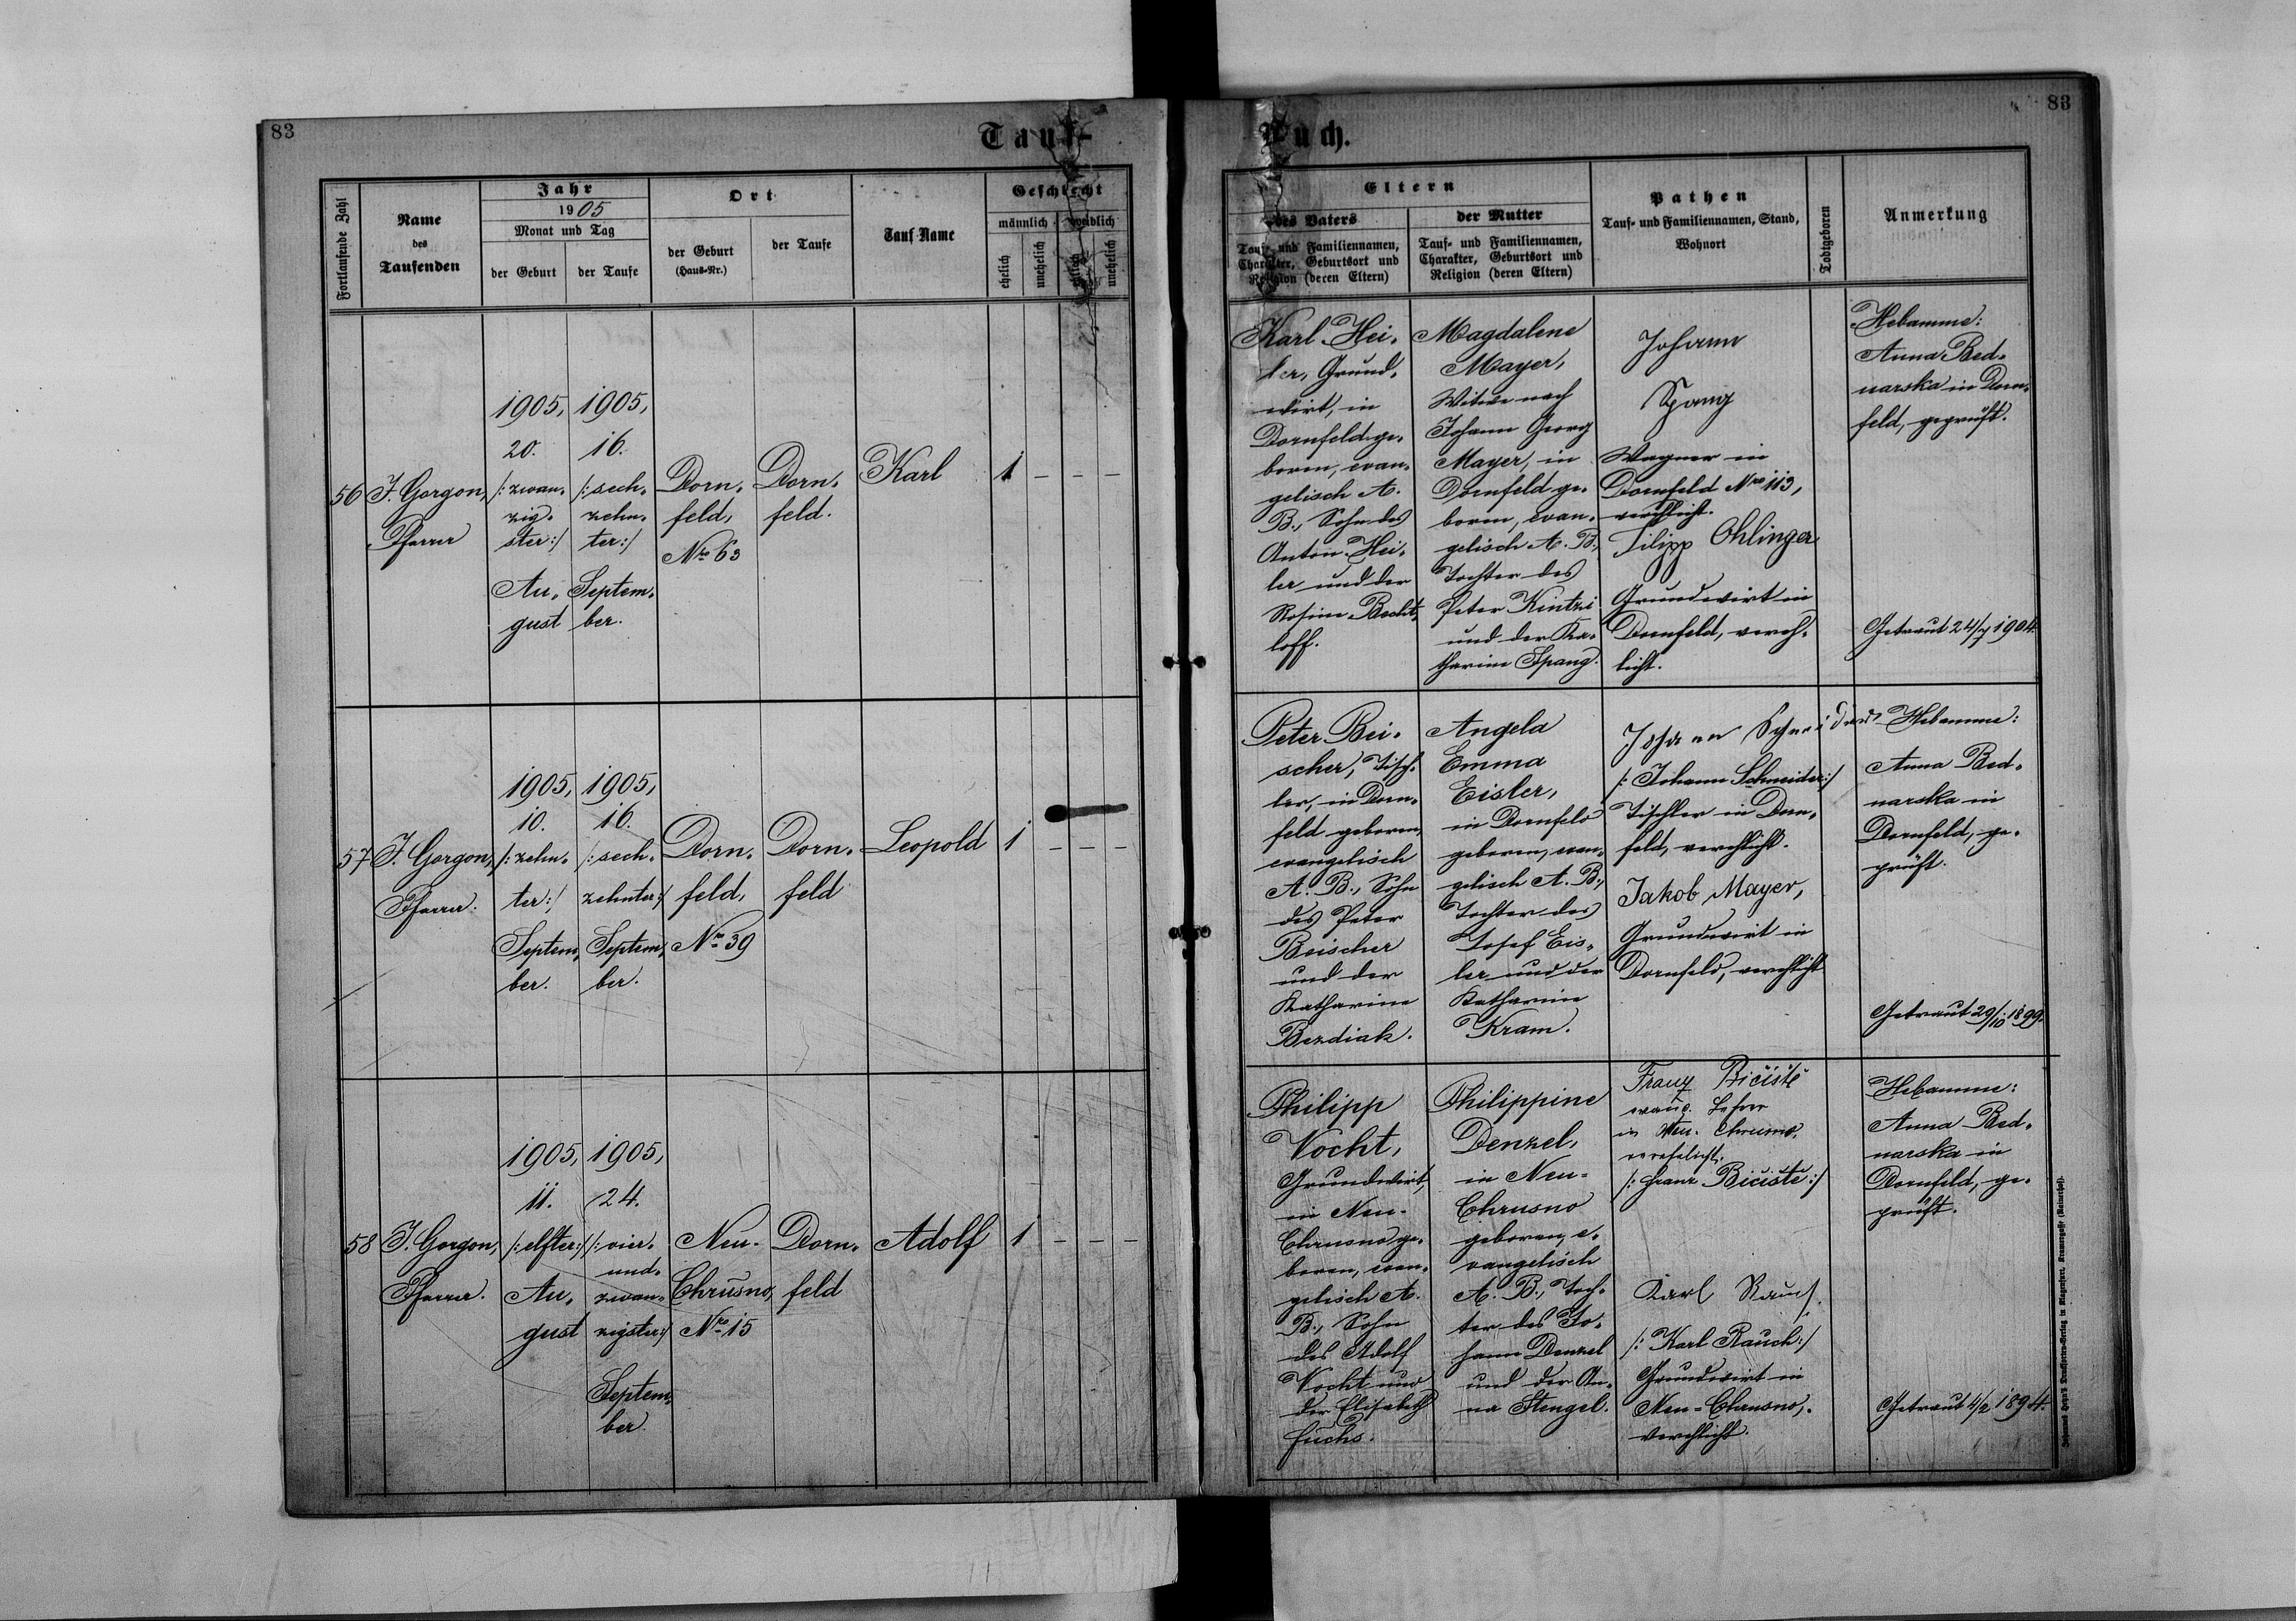 83
83
Tauf-
Buch.
Fortlaufende Zahl
Name
des
Taufenden
Jahr
1905
Monat und Tag
der Geburt
der Taufe
Ort
der Geburt
(Haus-Nr.)
der Taufe
Tauf-Name
Geschlecht
männlich
weiblich
ehelich
unehelich
ehelich
unehelich
Eltern
des Vaters
Tauf- und Familiennamen,
Charakter, Geburtsort und
Religion (deren Eltern)
der Mutter
Tauf- und Familiennamen,
Charakter, Geburtsort und
Religion (deren Eltern)
Pathen
Tauf- und Familiennamen, Stand,
Wohnort
Todtgeboren
Anmerkung
56
J. Gorgon,
Pfarrer
1905,
20.
/: zwan-
zig-
ster:/
Au-
gust
1905,
16.
/: sech-
zehn-
ter:/
Septem-
ber.
Dorn-
feld,
Nro 63
Dorn-
feld.
Karl
1
–
–
–
Karl Hei-
ler, Grund-
wirt, in
Dornfeld ge-
boren, evan-
gelisch A.
B., Sohn des
Anton Hei-
ler und der
Rosine Becht-
loff.
Magdalene
Mayer,
Witwe nach
Johann Georg
Mayer, in
Dornfeld ge-
boren, evan-
gelisch A. B.,
Tochter des
Peter Kintzi
und der Ka-
tharine Spang.
Johann
Spang
Wagner in
Dornfeld Nro 113,
verehlicht.
Filipp Ohlinger
Grundwirt in
Dornfeld, vereh-
licht.
Hebamme:
Anna Bed-
narska in Dorn-
feld, geprüft.
Getraut 24/7 1904.
57
J. Gorgon,
Pfarrer.
1905,
10.
/: zehn-
ter:/
Septem-
ber.
1905,
16.
/: sech-
zehnter:/
Septem-
ber.
Dorn-
feld,
Nro 39
Dorn-
feld
Leopold
1
–
–
–
Peter Bei-
scher, Tisch-
ler, in Dorn-
feld geboren,
evangelisch
A. B., Sohn
des Peter
Beischer
und der
Katharine
Bezdiak.
Angela
Emma
Eisler,
in Dornfeld
geboren, evan-
gelisch A. B.,
Tochter des
Josef Eis-
ler und der
Katharine
Kram.
Johann Schneider
/: Johann Schneider:/
Tischler in Dorn-
feld, verehlicht.
Jakob Mayer,
Grundwirt in
Dornfeld, verehlicht
Hebamme:
Anna Bed-
narska in
Dornfeld, ge-
prüft.
Getraut 29/10 1899.
58
J. Gorgon,
Pfarrer.
1905,
11.
/: elfter:/
Au-
gust
1905,
24.
/: vier-
und-
zwan-
zigster:/
Septem-
ber.
Neu-
Chrusno,
Nro 15
Dorn-
feld
Adolf
1
–
–
–
Philipp
Vocht,
Grundwirt,
in Neu-
Chrusno ge-
boren, evan-
gelisch A.
B., Sohn
des Adolf
Vocht und
der Elisabeth
Fuchs.
Philippine
Denzel,
in Neu-
Chrusno
geboren, e-
vangelisch
A. B., Toch-
ter des Jo-
hann Denzel
und der An-
na Stengel.
Franz Bičiště
evang. Lehrer
in Neu-Chrusno,
verehelicht.
/: Franz Bičiště:/
Karl Rauch.
/: Karl Rauch:/
Grundwirt in
Neu-Chrusno,
verehlicht.
Hebamme:
Anna Bed-
narska in
Dornfeld, ge-
prüft.
Getraut 4/2 1894.